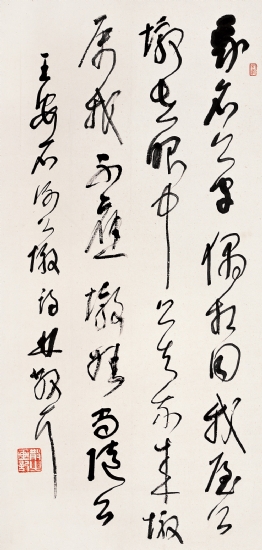 我名公字偶相同我屋公
墩在眼中公去我來墩
属我不應墩姓尚隨公
王安石謝公墩詩 林散耳